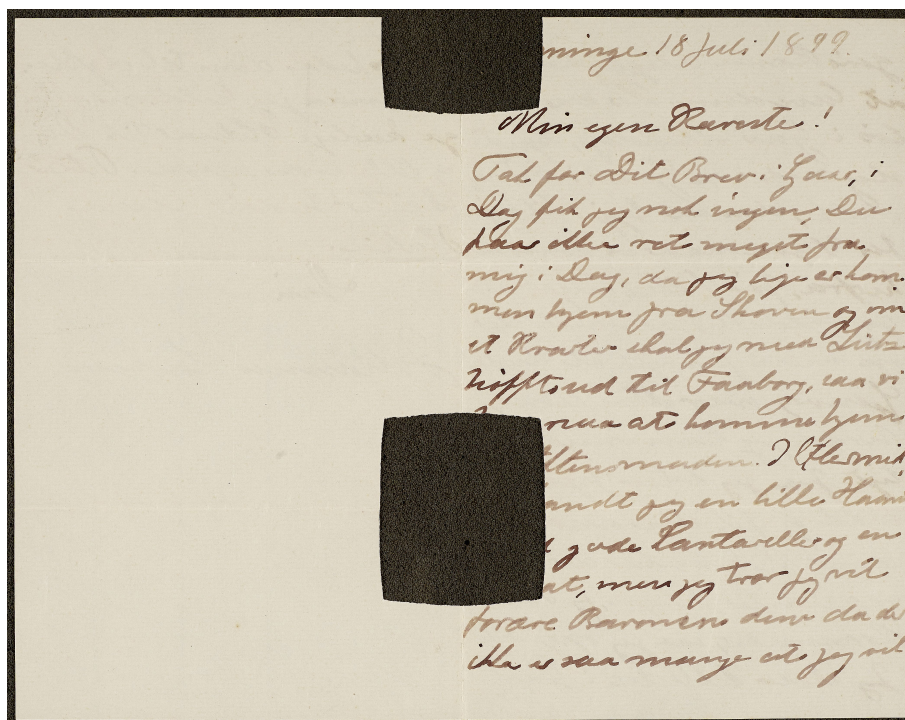 ninge 18 Juli 1899.
Min egen Kæreste!
Tak for Dit Brev i Gaar, i
Dag fik jeg nok ingen, Du
faar ikke ret meget fra
mig i Dag, da jeg lige er kom-
men hjem fra Skoven og om
et Kvarter skal jeg med Lütz-
höfft ud til Faaborg, saa vi
naa at komme hjem
ftensmaden. I Eftermid
andt jeg en lille Haand
d gode Cantareller og en
at, men jeg tror jeg vil
forære Baronen dem da de
ikke er saa mange at jeg vil